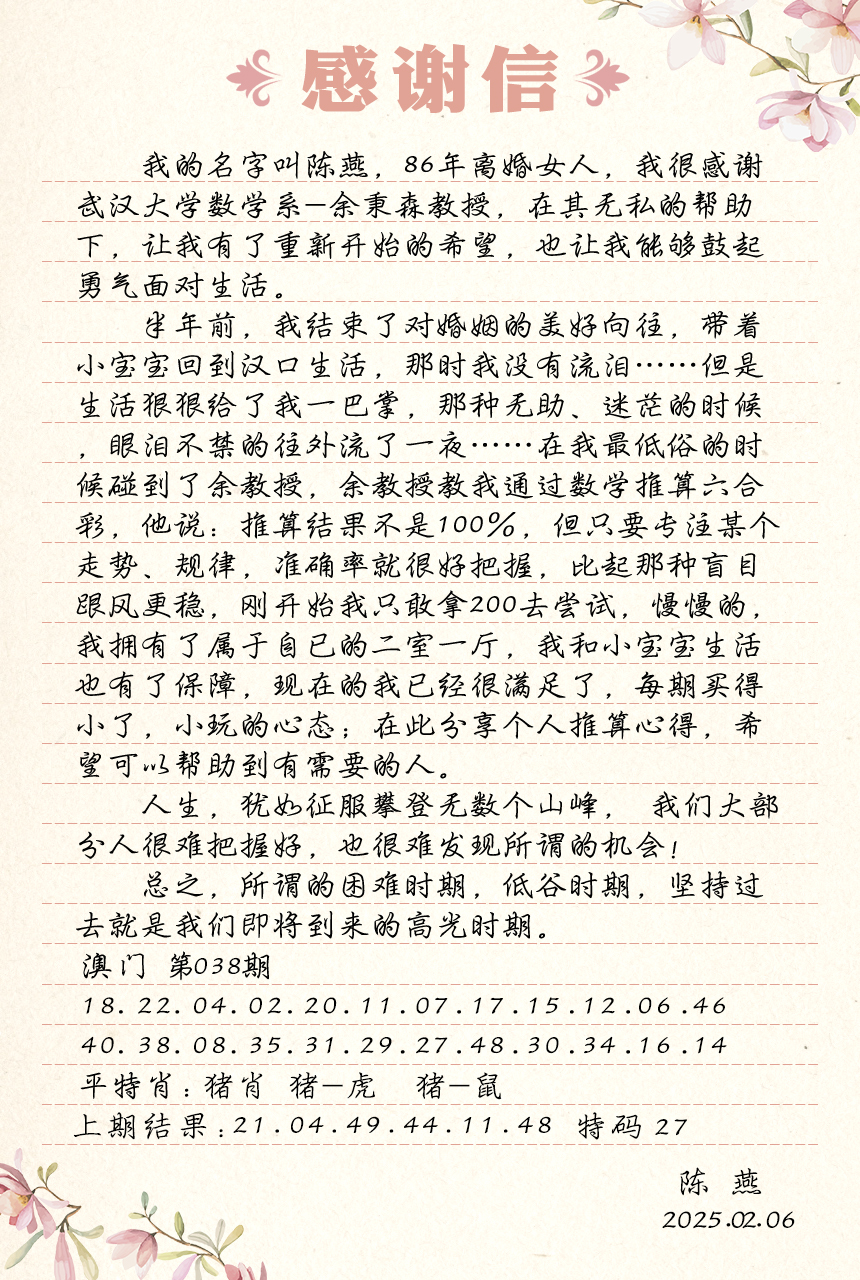 感谢信
我的名字叫陈燕，86年离婚女人，我很感谢
武汉大学数学系—余秉森教授，在其无私的帮助
下，让我有了重新开始的希望，也让我能够鼓起
勇气面对生活。
半年前，我结束了对婚姻的美好向往，带着
小宝宝回到汉口生活，那时我没有流泪……但是
生活狠狠给了我一巴掌，那种无助、迷茫的时候
，眼泪不禁的往外流了一夜……在我最低俗的时
候碰到了余教授，余教授教我通过数学推算六合
彩，他说：推算结果不是100%，但只要专注某个
走势、规律，准确率就很好把握，比起那种盲目
跟风更稳，刚开始我只敢拿200去尝试，慢慢的，
我拥有了属于自已的二室一厅，我和小宝宝生活
也有了保障，现在的我已经很满足了，每期买得
小了，小玩的心态；在此分享个人推算心得，希
望可以帮助到有需要的人。
人生，犹如征服攀登无数个山峰， 我们大部
分人很难把握好，也很难发现所谓的机会！
总之，所谓的困难时期，低谷时期，坚持过
去就是我们即将到来的高光时期。
澳门 第038期
18.22.04.02.20.11.07.17.15.12.06.46
40.38.08.35.31.29.27.48.30.34.16.14
平特肖：猪肖 猪—虎 猪—鼠
上期结果：21.04.49.44.11.48 特码 27
陈 燕
2025.02.06